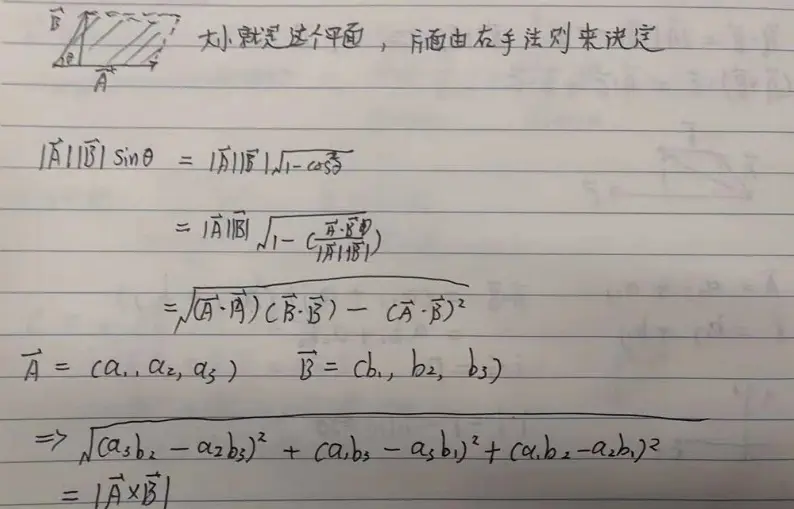 B⃗
θ
A⃗
大小就是这个平面，方面由右手法则来决定
|A⃗||B⃗| sinθ = |A⃗||B⃗|√(1-cos²θ)
= |A⃗||B⃗| √(1-(A⃗·B⃗/|A⃗||B⃗|))
= √((A⃗·A⃗)(B⃗·B⃗) - (A⃗·B⃗)²)
A⃗ = (a₁, a₂, a₃) B⃗ = (b₁, b₂, b₃)
=> √((a₃b₂ - a₂b₃)² + (a₁b₃ - a₃b₁)² + (a₁b₂ - a₂b₁)²)
= |A⃗×B⃗|